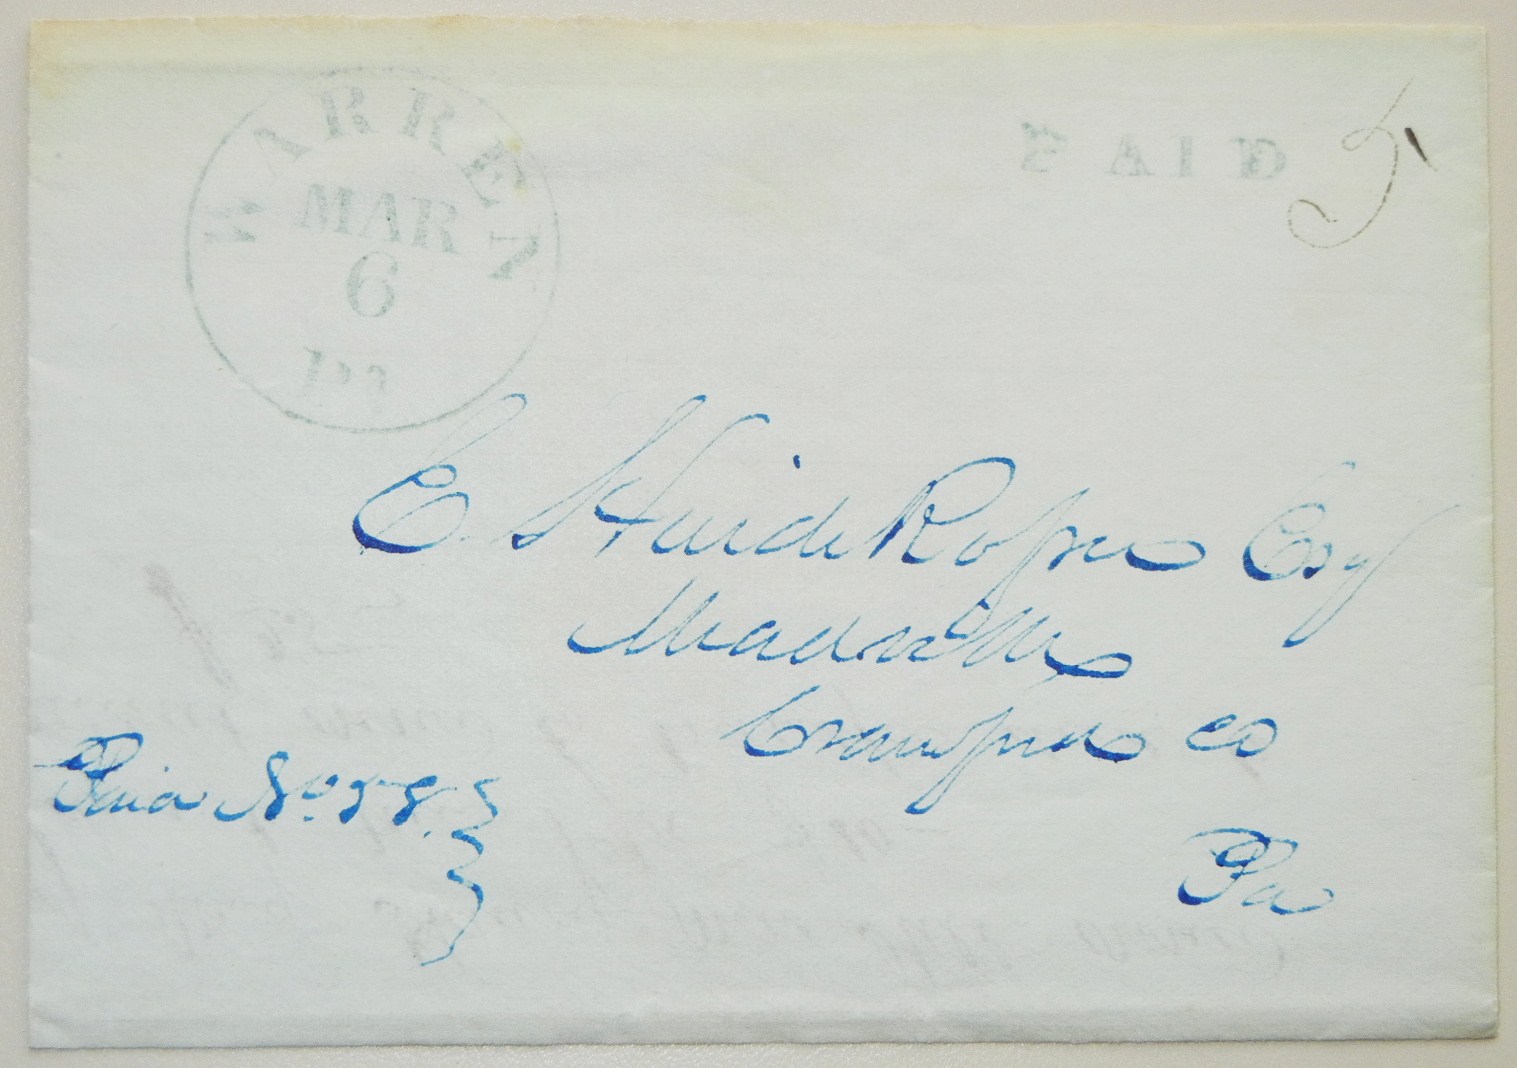 WARREN
MAR
6
Pa
PAID 5
E. HuideKoper Esqr
Meadville
Crawford Co
Paid No. 58.
Pa